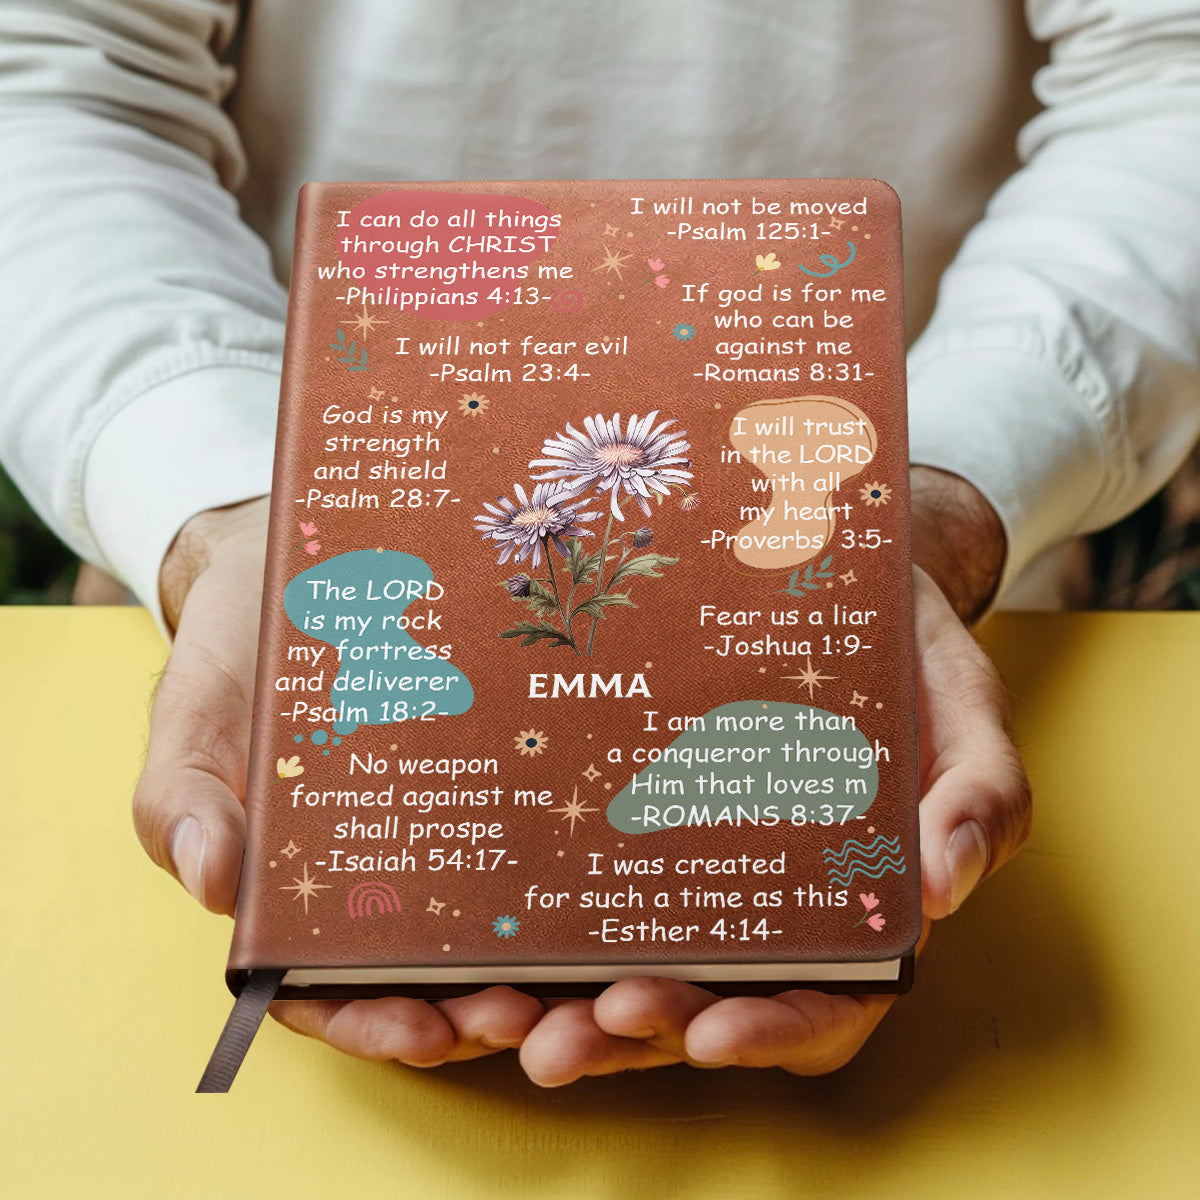 I can do all things
through CHRIST
who strengthens me
-Philippians 4:13-
I will not be moved
-Psalm 125:1-
If god is for me
who can be
against me
-Romans 8:31-
I will not fear evil
-Psalm 23:4-
God is my
strength
and shield
-Psalm 28:7-
I will trust
in the LORD
with all
my heart
-Proverbs 3:5-
The LORD
is my rock
my fortress
and deliverer
-Psalm 18:2-
Fear us a liar
-Joshua 1:9-
EMMA
I am more than
a conqueror through
Him that loves m
-ROMANS 8:37-
No weapon
formed against me
shall prospe
-Isaiah 54:17-
I was created
for such a time as this
-Esther 4:14-